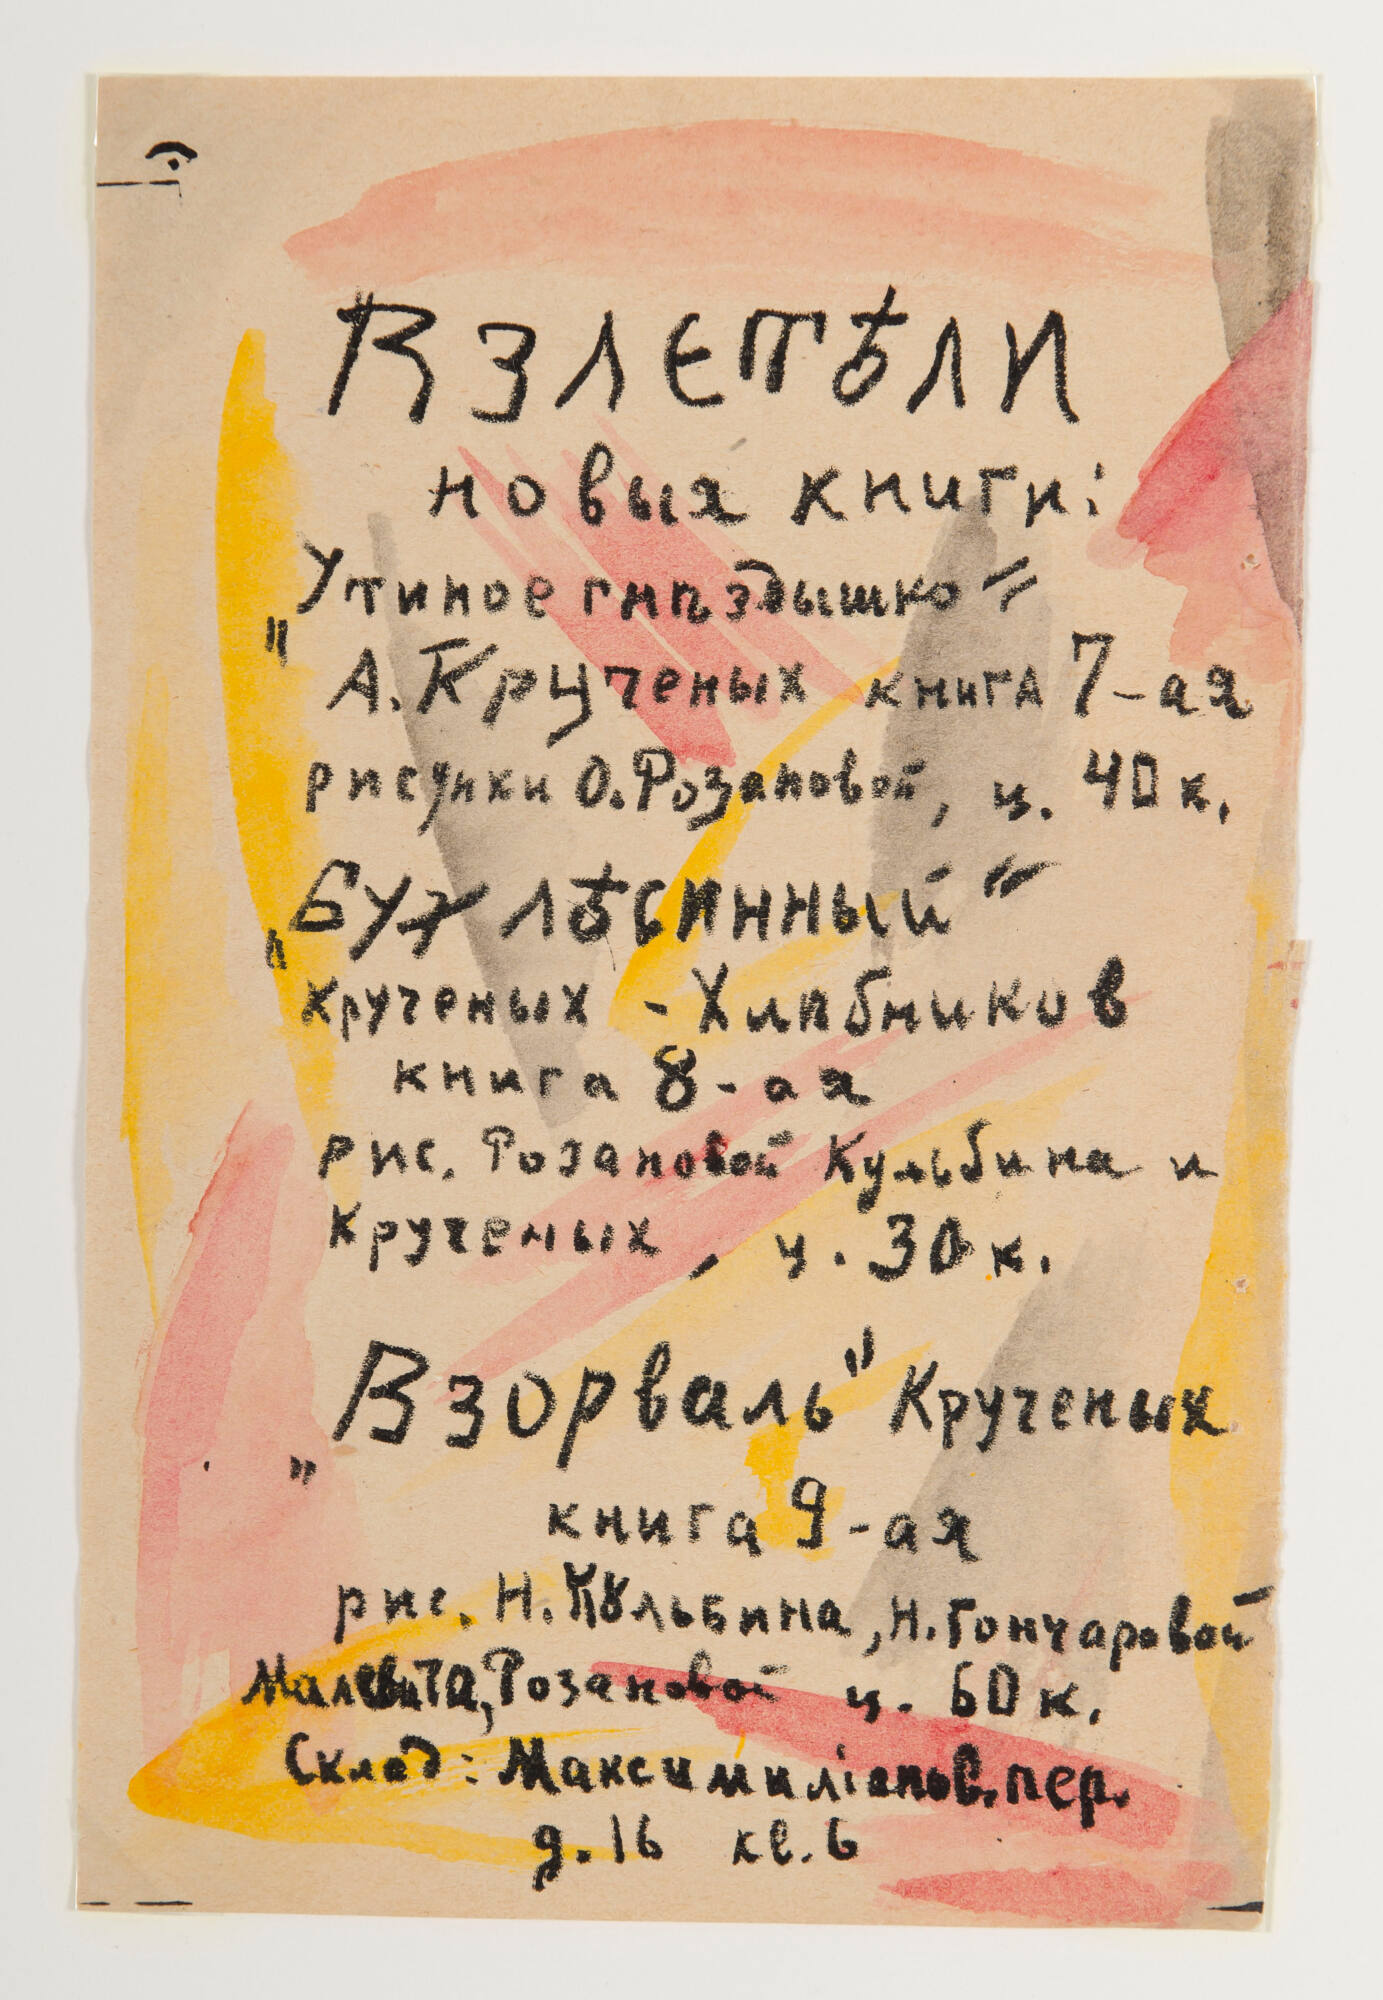 ВЗЛЕТѢЛИ
новыя книги:
„Утиное гнѣздышко“
А. Крученых книга 7-ая
рисунки О. Розановой, ц. 40 к.
„Бух лѣсинный“
Крученых - Хлѣбников
книга 8-ая
рис. Розановой Кульбина и
Крученых, ц. 30 к.
„Взорваль“ Крученых
книга 9-ая
рис. Н. Кульбина, Н. Гончаровой
Малевича, Розановой ц. 60 к.
Склад: Максимиліанов. пер.
д. 16 кв. 6